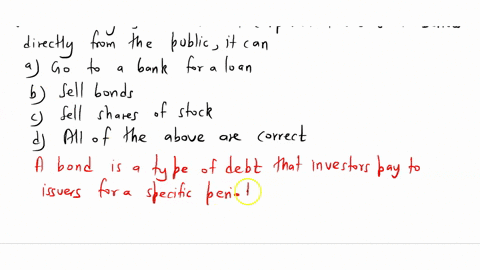 directly from the public, it can
a) Go to a bank for a loan
b) Sell bonds
c) Sell shares of stock
d) All of the above are correct
A bond is a type of debt that investors pay to
issuers for a specific